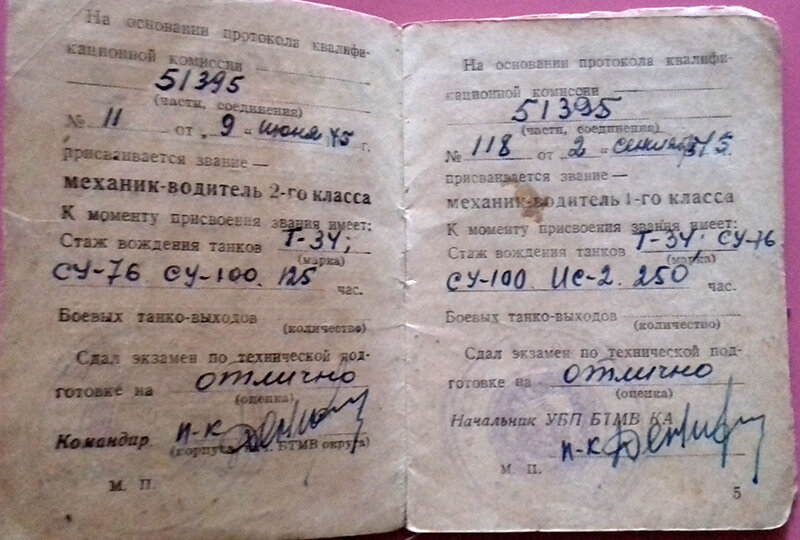 На основании протокола квалифи-
кационной комиссии
51395
(части, соединения)
№ 11 от „ 9 “ июня 45 г.
присваивается звание —
механик-водитель 2-го класса
К моменту присвоения звания имеет:
Стаж вождения танков Т-34;
(марка)
СУ-76. СУ-100. 125 час.
Боевых танко-выходов
(количество)
Сдал экзамен по технической под-
готовке на отлично
(оценка)
Командир п-к
БТМВ округа)
М. П.
На основании протокола квалифи-
кационной комиссии
51395
(части, соединения)
№ 118 от „ 2 “ 45 г.
присваивается звание —
механик-водитель 1-го класса
К моменту присвоения звания имеет:
Стаж вождения танков Т-34; СУ-76
(марка)
СУ-100. ИС-2. 250 час.
Боевых танко-выходов
(количество)
Сдал экзамен по технической под-
готовке на отлично
(оценка)
Начальник УБП БТМВ КА
п-к
М. П.
5